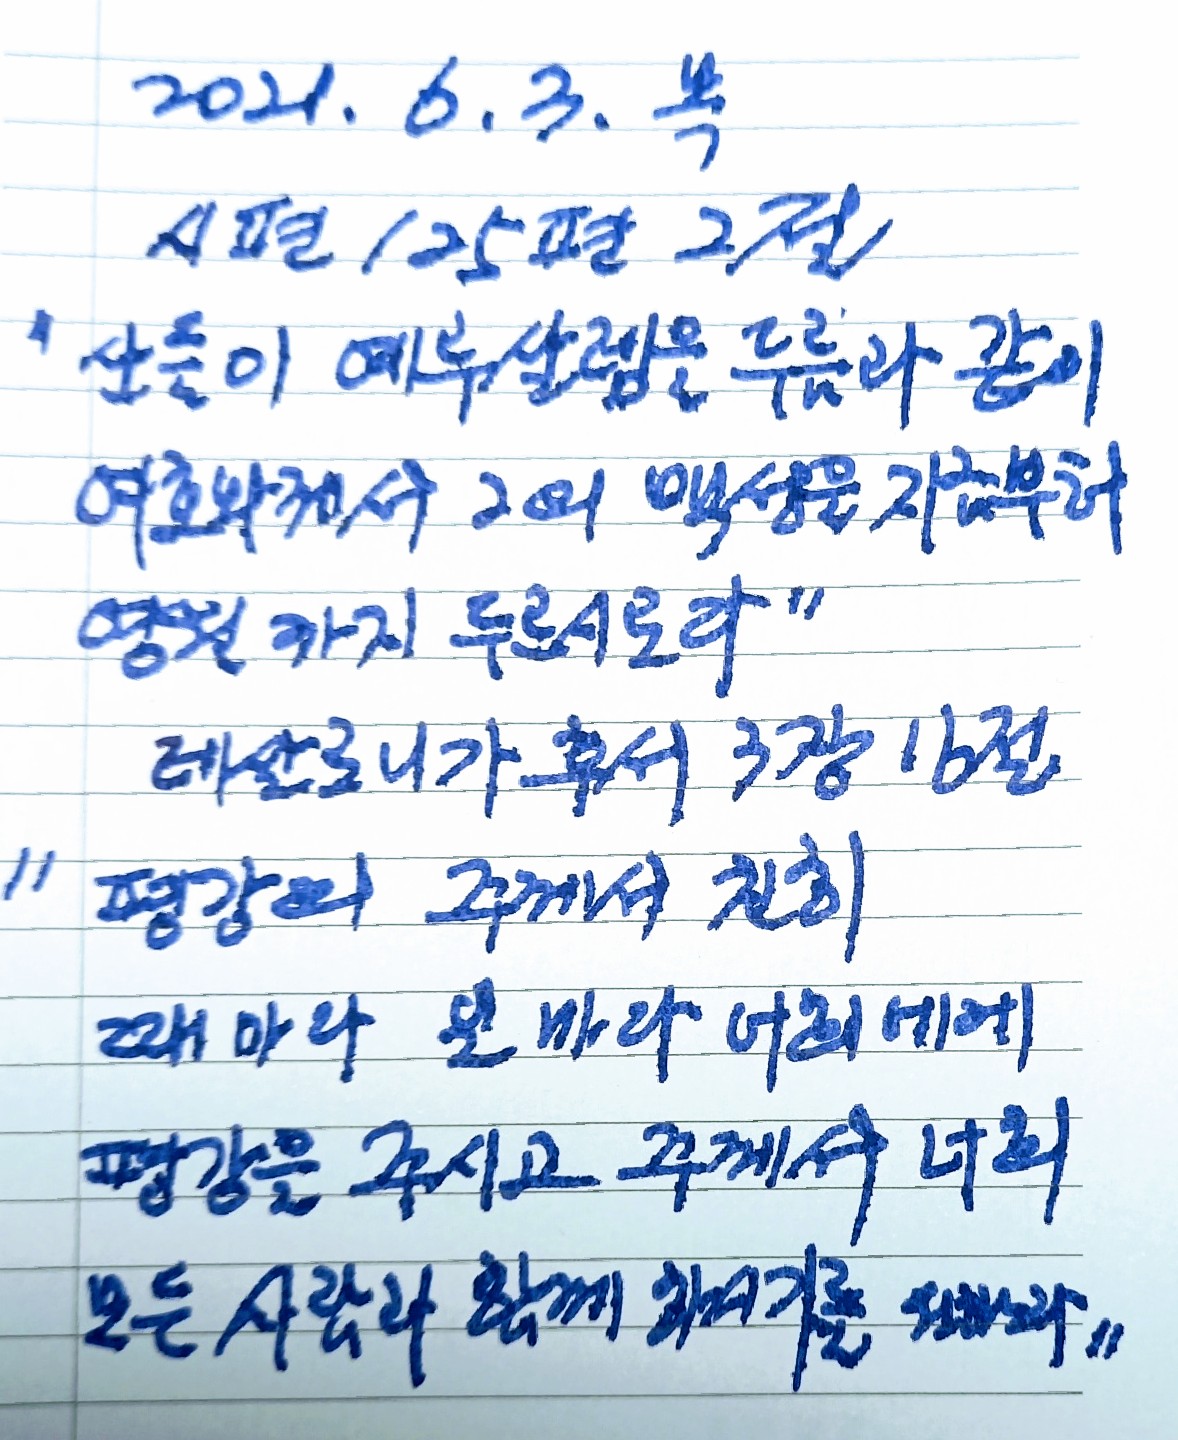 2021. 6. 3. 목
시편 125편 2절
"산들이 예루살렘을 두름과 같이
여호와께서 그의 백성을 지금부터
영원까지 두르시로다"
데살로니가 후서 3장 16절
"평강의 주께서 친히
때마다 일마다 너희에게
평강을 주시고 주께서 너희
모든 사람과 함께 하시기를 원하노라"